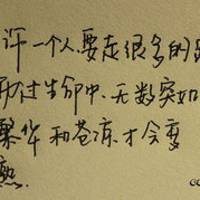 许一个人要走很多的路
历过生命中无数突如
繁华和苍凉才会变
熟.